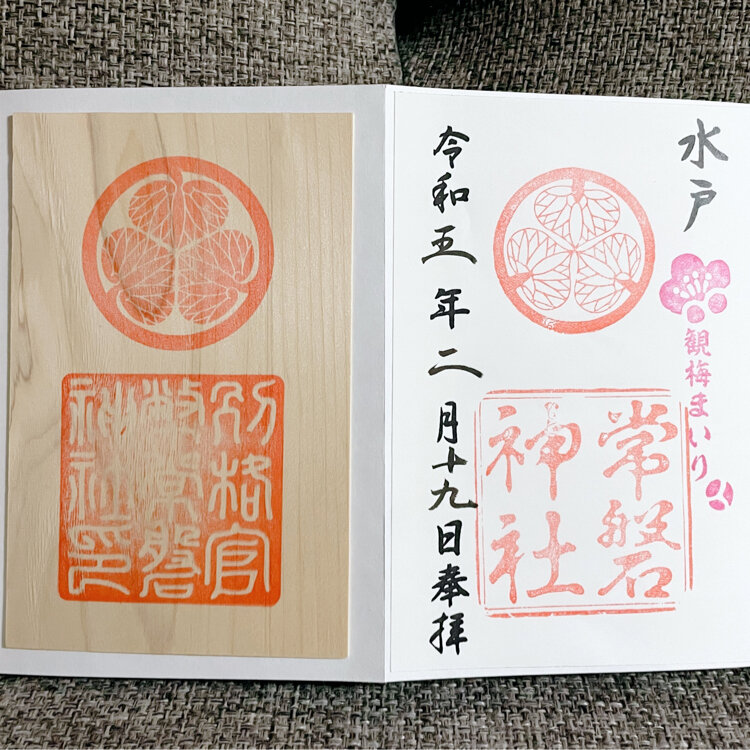 水戸
観梅まいり
常磐
神社
令和五年二月十九日奉拝
別格官
幣常磐
神社印